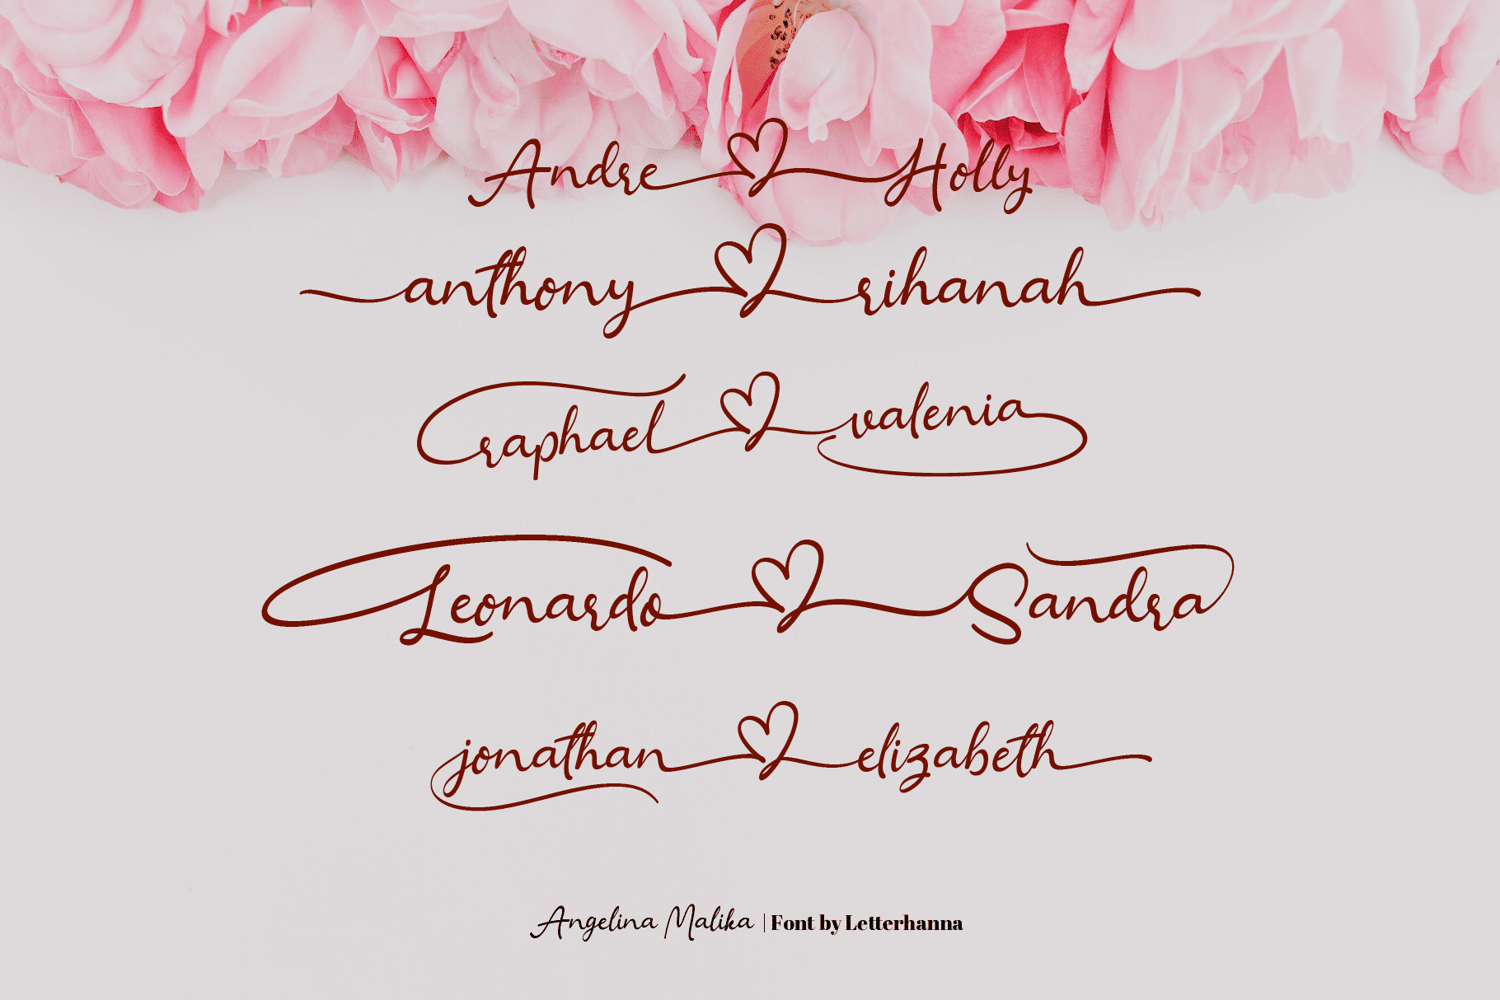 Andre Holly
anthony rihanah
raphael valenia
Leonardo Sandra
jonathan elizabeth
Angelina Malika | Font by Letterhanna